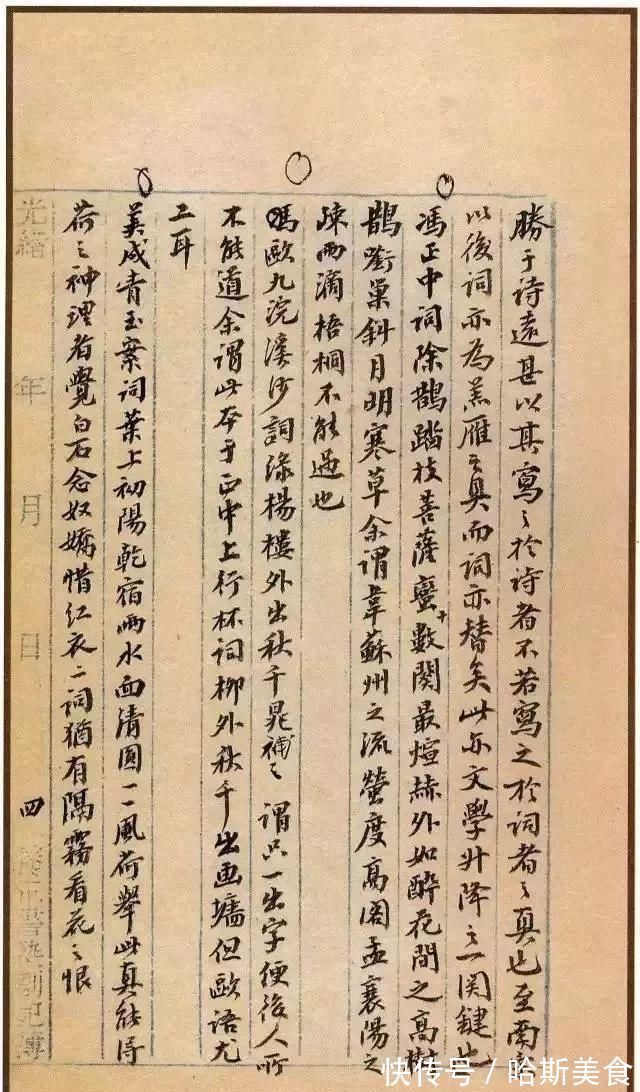 勝于詩遠甚以其寫之於詩者不若寫之於詞者之真也至南宋
以後詞亦為羔雁之具而詞亦替矣此亦文學升降之一関鍵也
馮正中詞除鵲踏枝菩薩蠻十數闋最煊赫外如醉花間之高樹
鵲銜巢斜月明寒草余謂韋蘇州之流螢度高閣孟襄陽之
疎雨滴梧桐不能過也
馮歐九浣溪沙詞綠楊樓外出秋千晁補之謂只一出字便後人所
不能道余謂此本于正中上行杯詞柳外秋千出画墻但歐語尤
工耳
美成青玉案詞葉上初陽乾宿雨水面清圓一一風荷舉此真能得
荷之神理者覺白石念奴嬌惜紅衣二詞猶有隔霧看花之恨
光緒 年 月 日 四
快传号/哈斯美食